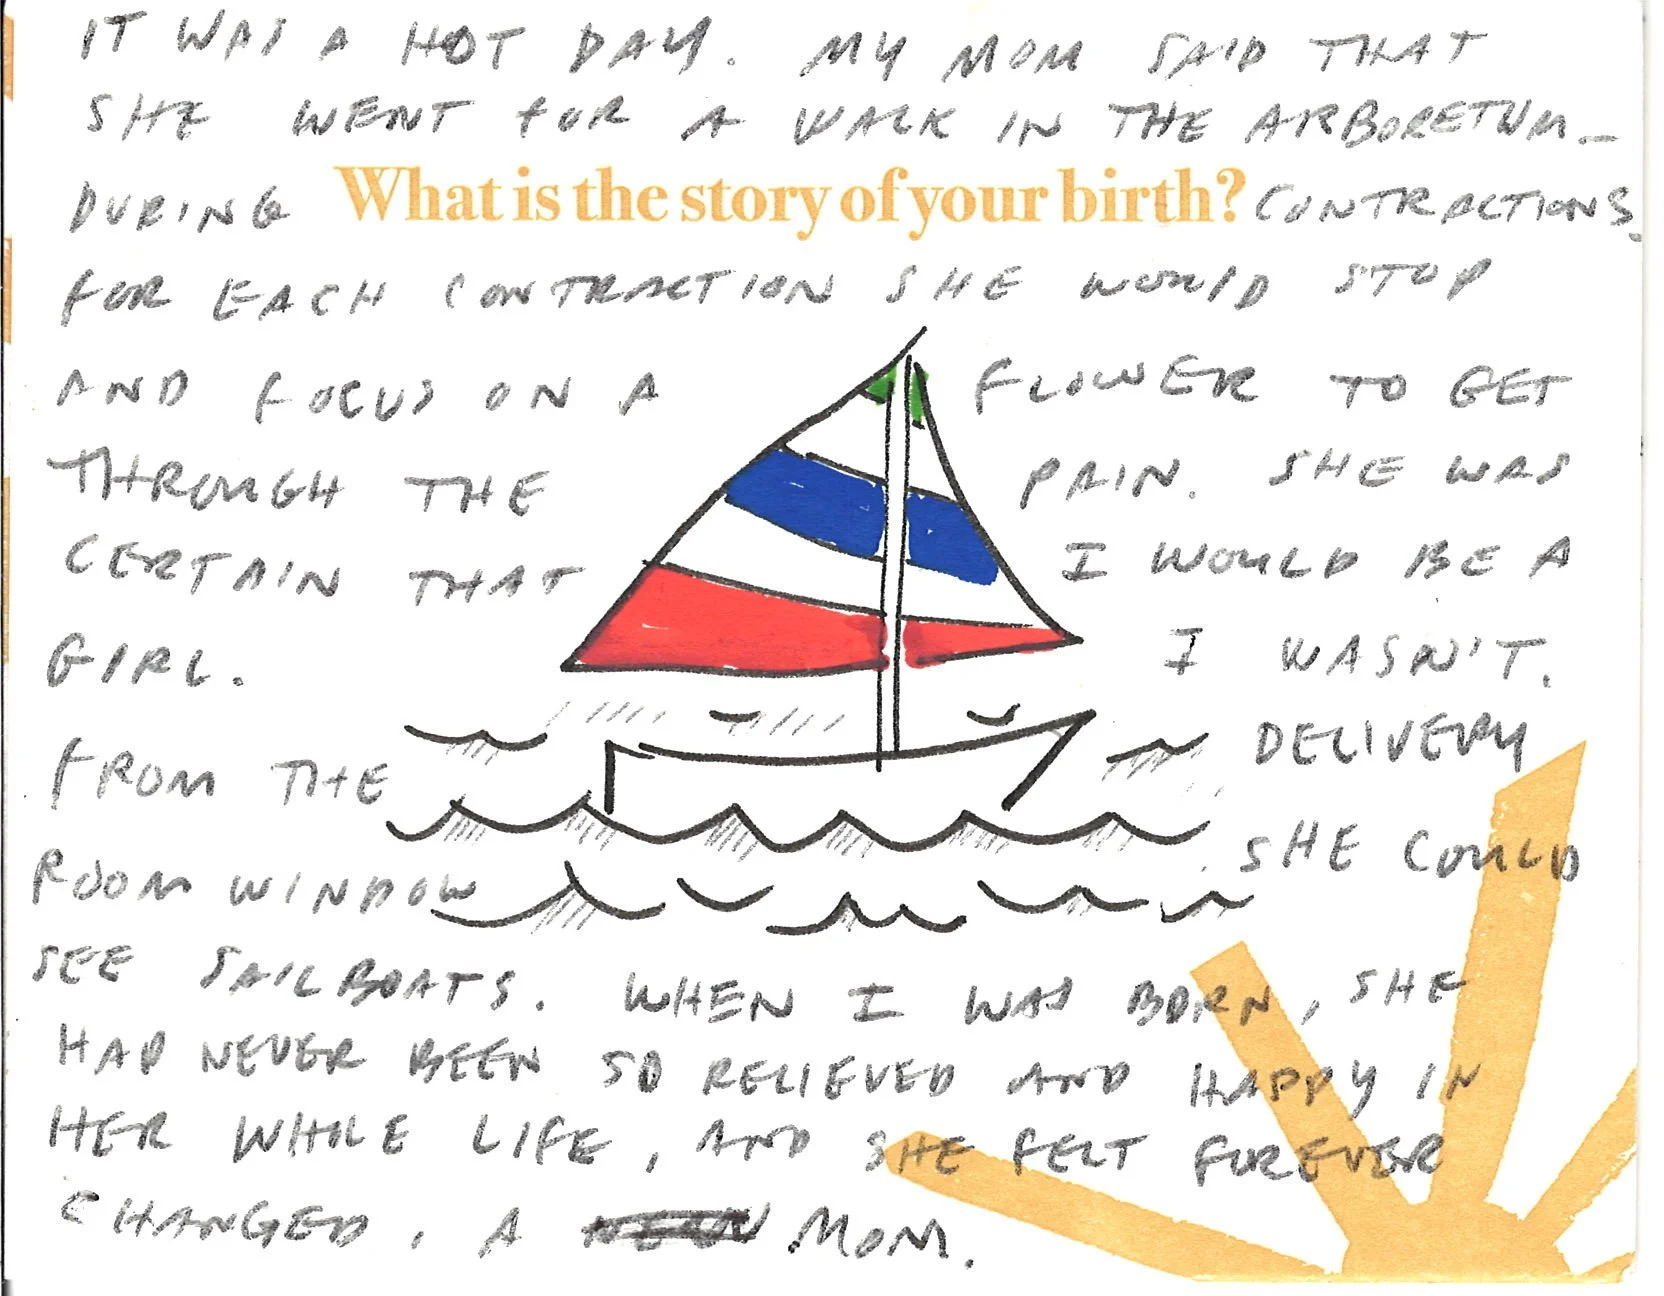 IT WAS A HOT DAY. MY MOM SAID THAT
SHE WENT FOR A WALK IN THE ARBORETUM
What is the story of your birth?
DURING CONTRACTIONS.
FOR EACH CONTRACTION SHE WOULD STOP
AND FOCUS ON A FLOWER TO GET
THROUGH THE PAIN. SHE WAS
CERTAIN THAT I WOULD BE A
GIRL. I WASN'T.
FROM THE DELIVERY
ROOM WINDOW SHE COULD
SEE SAILBOATS. WHEN I WAS BORN, SHE
HAD NEVER BEEN SO RELIEVED AND HAPPY IN
HER WHOLE LIFE, AND SHE FELT FOREVER
CHANGED. A MOM.